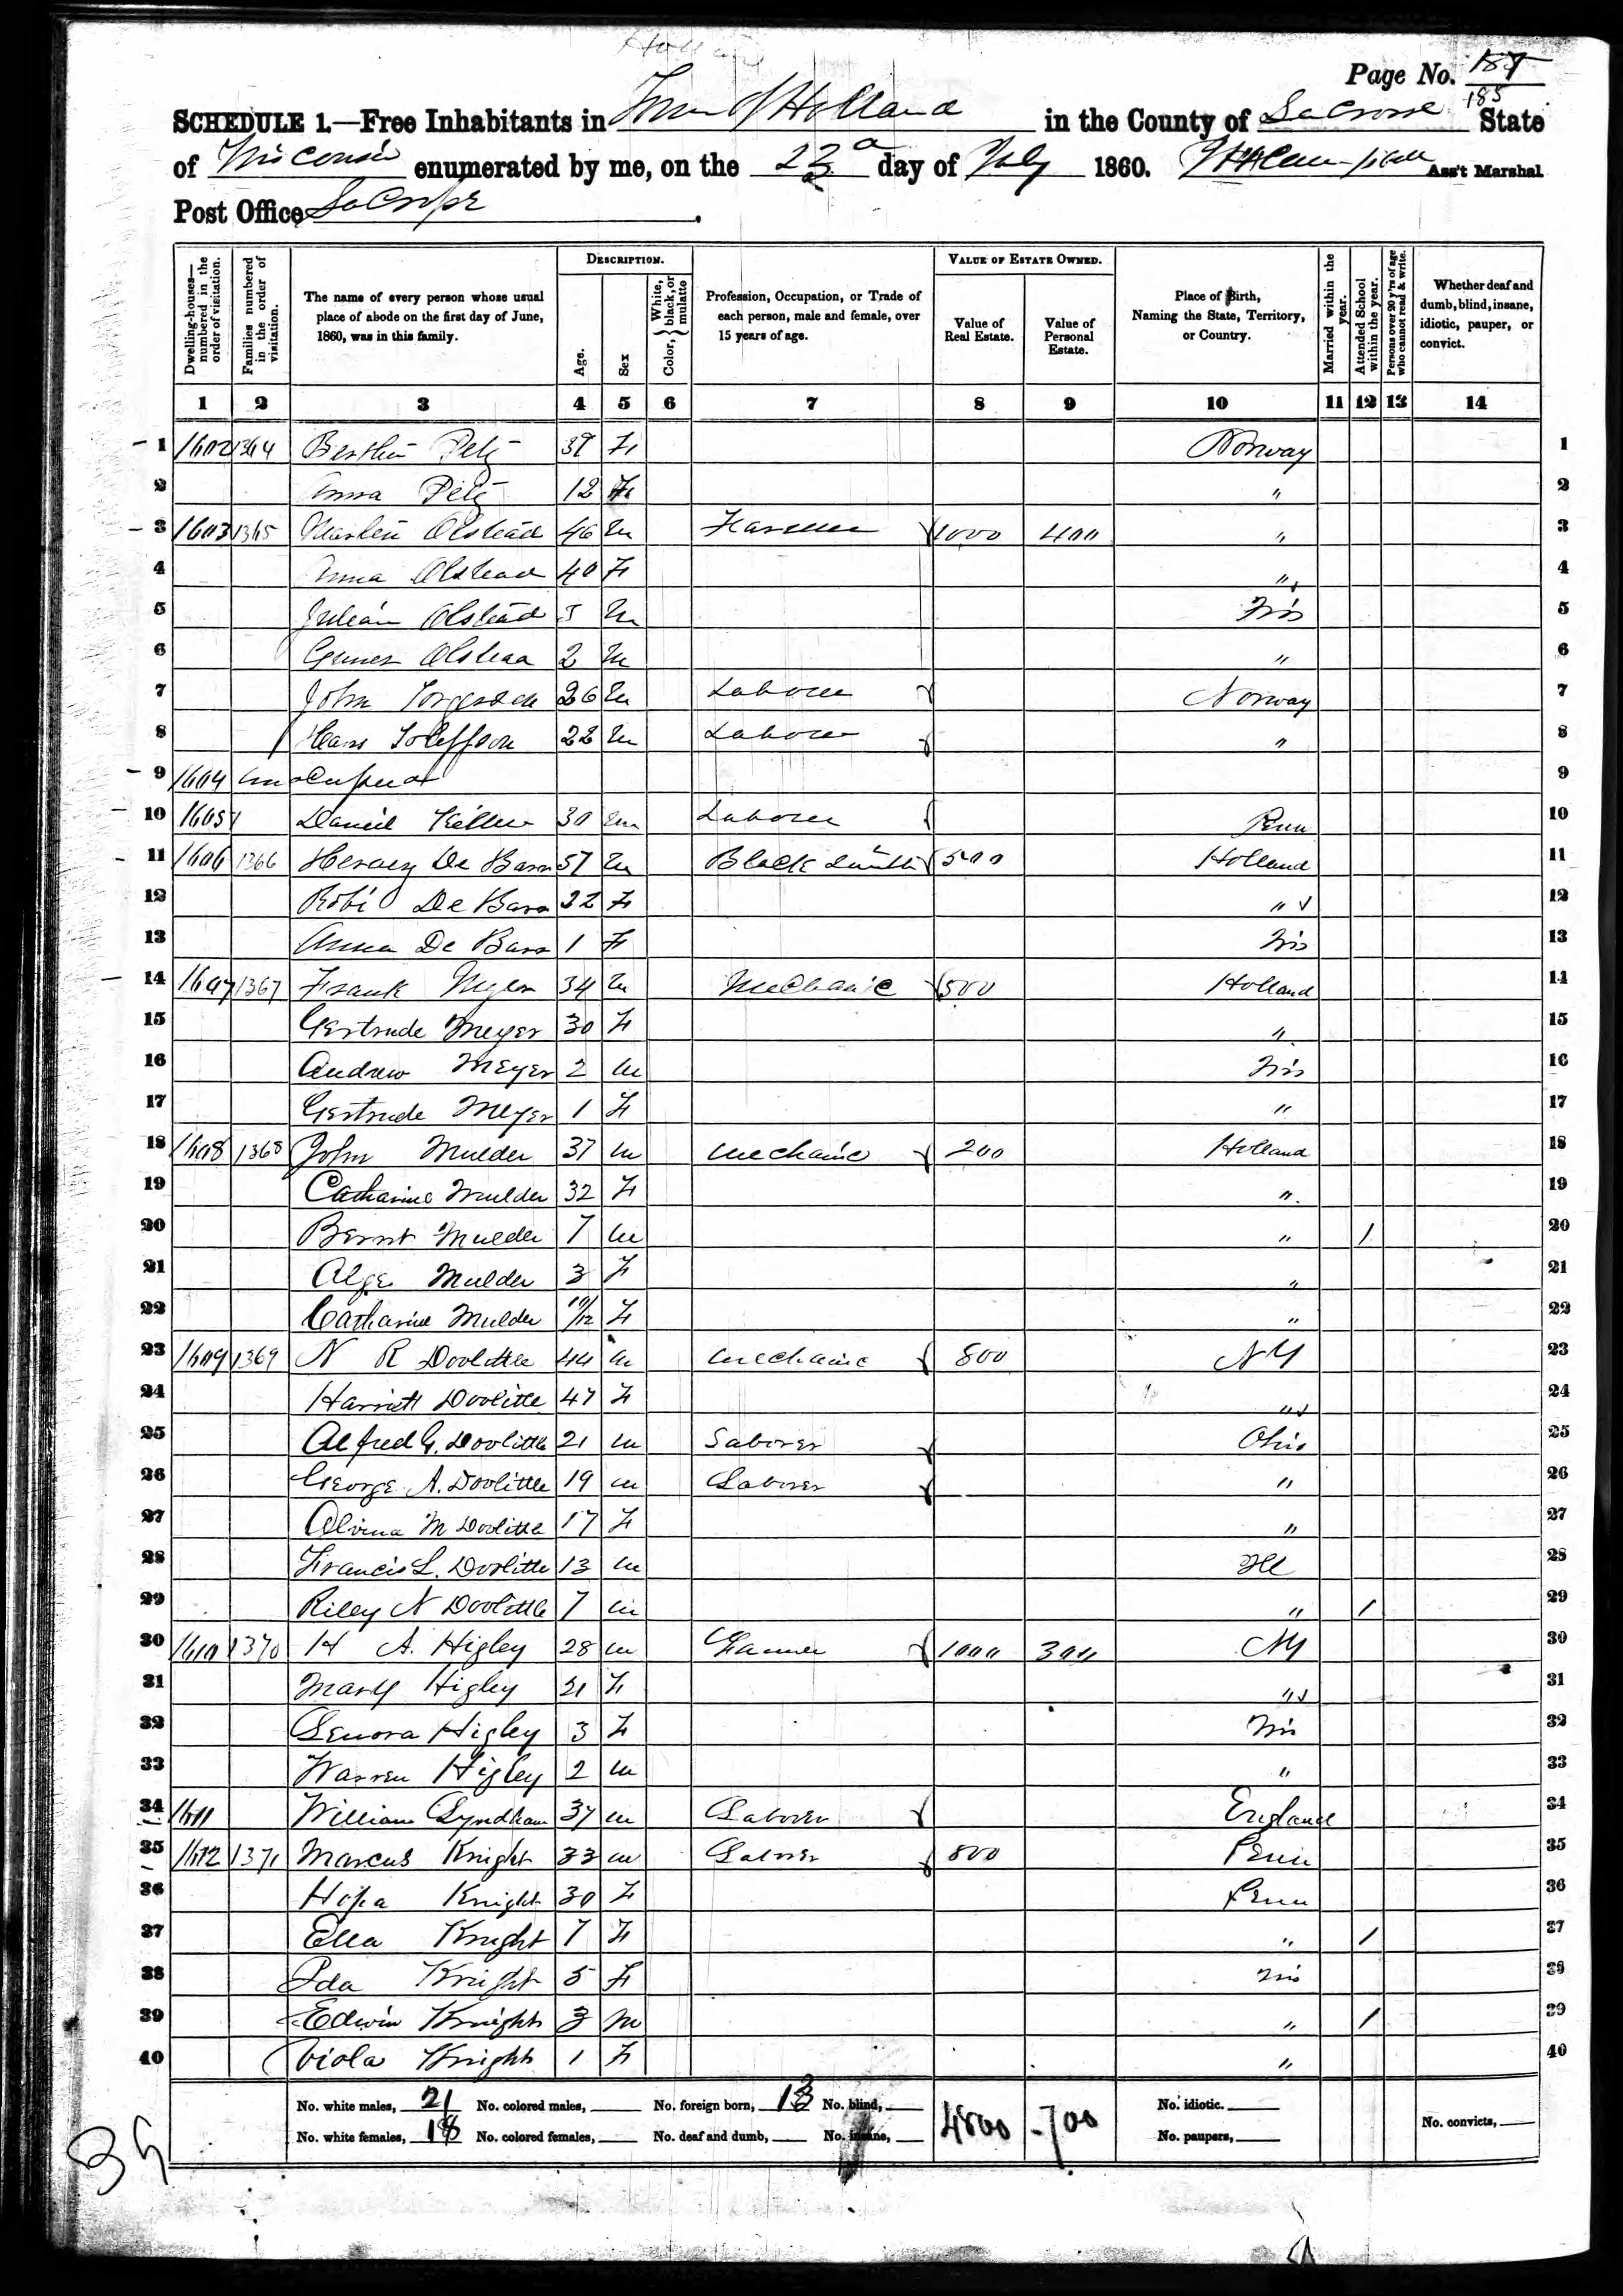 Page No. 187
185
SCHEDULE 1.—Free Inhabitants in Town of Holland in the County of LaCrosse State
of Wisconsin enumerated by me, on the 23d day of July 1860. Ass't Marshal
Post Office LaCrosse
Dwelling-houses—numbered in the order of visitation. Families numbered in the order of visitation. The name of every person whose usual place of abode on the first day of June, 1860, was in this family. DESCRIPTION. Age. Sex Color, White, black, or mulatto Profession, Occupation, or Trade of each person, male and female, over 15 years of age. VALUE OF ESTATE OWNED. Value of Real Estate. Value of Personal Estate. Place of Birth, Naming the State, Territory, or Country. Married within the year. Attended School within the year. Persons over 20 y'rs of age who cannot read & write. Whether deaf and dumb, blind, insane, idiotic, pauper, or convict.
1 2 3 4 5 6 7 8 9 10 11 12 13 14
1 1602 1364 F Norway 1
2 Anna 12 F " 2
3 1603 1365 Olstead 46 M Farmer 1000 400 " 3
4 Anna Olstead 40 F " 4
5 Julian Olstead 5 M Wis 5
6 Olstead 2 M " 6
7 John 26 M Laborer Norway 7
8 Hans 22 M Laborer " 8
9 1604 Unoccupied 9
10 1605 Daniel 30 M Laborer Penn 10
11 1606 1366 De Barr 57 M Black Smith 500 Holland 11
12 De Barr 22 F " 12
13 Anna De Barr 1 F Wis 13
14 1607 1367 Frank Myer 34 M Mechanic 500 Holland 14
15 Gertrude Meyer 30 F " 15
16 Andrew Meyer 2 M Wis 16
17 Gertrude Meyer 1 F " 17
18 1608 1368 John Mulder 37 M Mechanic 200 Holland 18
19 Catharine Mulder 32 F " 19
20 Mulder 7 M " 1 20
21 Mulder 3 F " 21
22 Catharine Mulder 10/12 F " 22
23 1609 1369 N R Doolittle 44 M Mechanic 800 NY 23
24 Harriett Doolittle 47 F " 24
25 Alfred G. Doolittle 21 M Laborer Ohio 25
26 George A. Doolittle 19 M Laborer " 26
27 Alvina M Doolittle 17 F " 27
28 Francis L. Doolittle 13 M Ill 28
29 Riley N Doolittle 7 M " 1 29
30 1610 1370 H A. Higley 28 M Farmer 1000 300 NY 30
31 Mary Higley 21 F " 31
32 Lenora Higley 3 F Wis 32
33 Warren Higley 2 M " 33
34 1611 William Lyndham 37 M Laborer England 34
35 1612 1371 Marcus Knight 33 M Laborer 800 Penn 35
36 Knight 30 F Penn 36
37 Ella Knight 7 F " 1 37
38 Ida Knight 5 F Wis 38
39 Edwin Knight 3 M " 1 39
40 Viola Knight 1 F " 40
No. white males, 21 No. colored males, No. foreign born, 18 No. blind, 4800 700 No. idiotic. No. convicts,
No. white females, 18 No. colored females, No. deaf and dumb, No. insane, No. paupers,